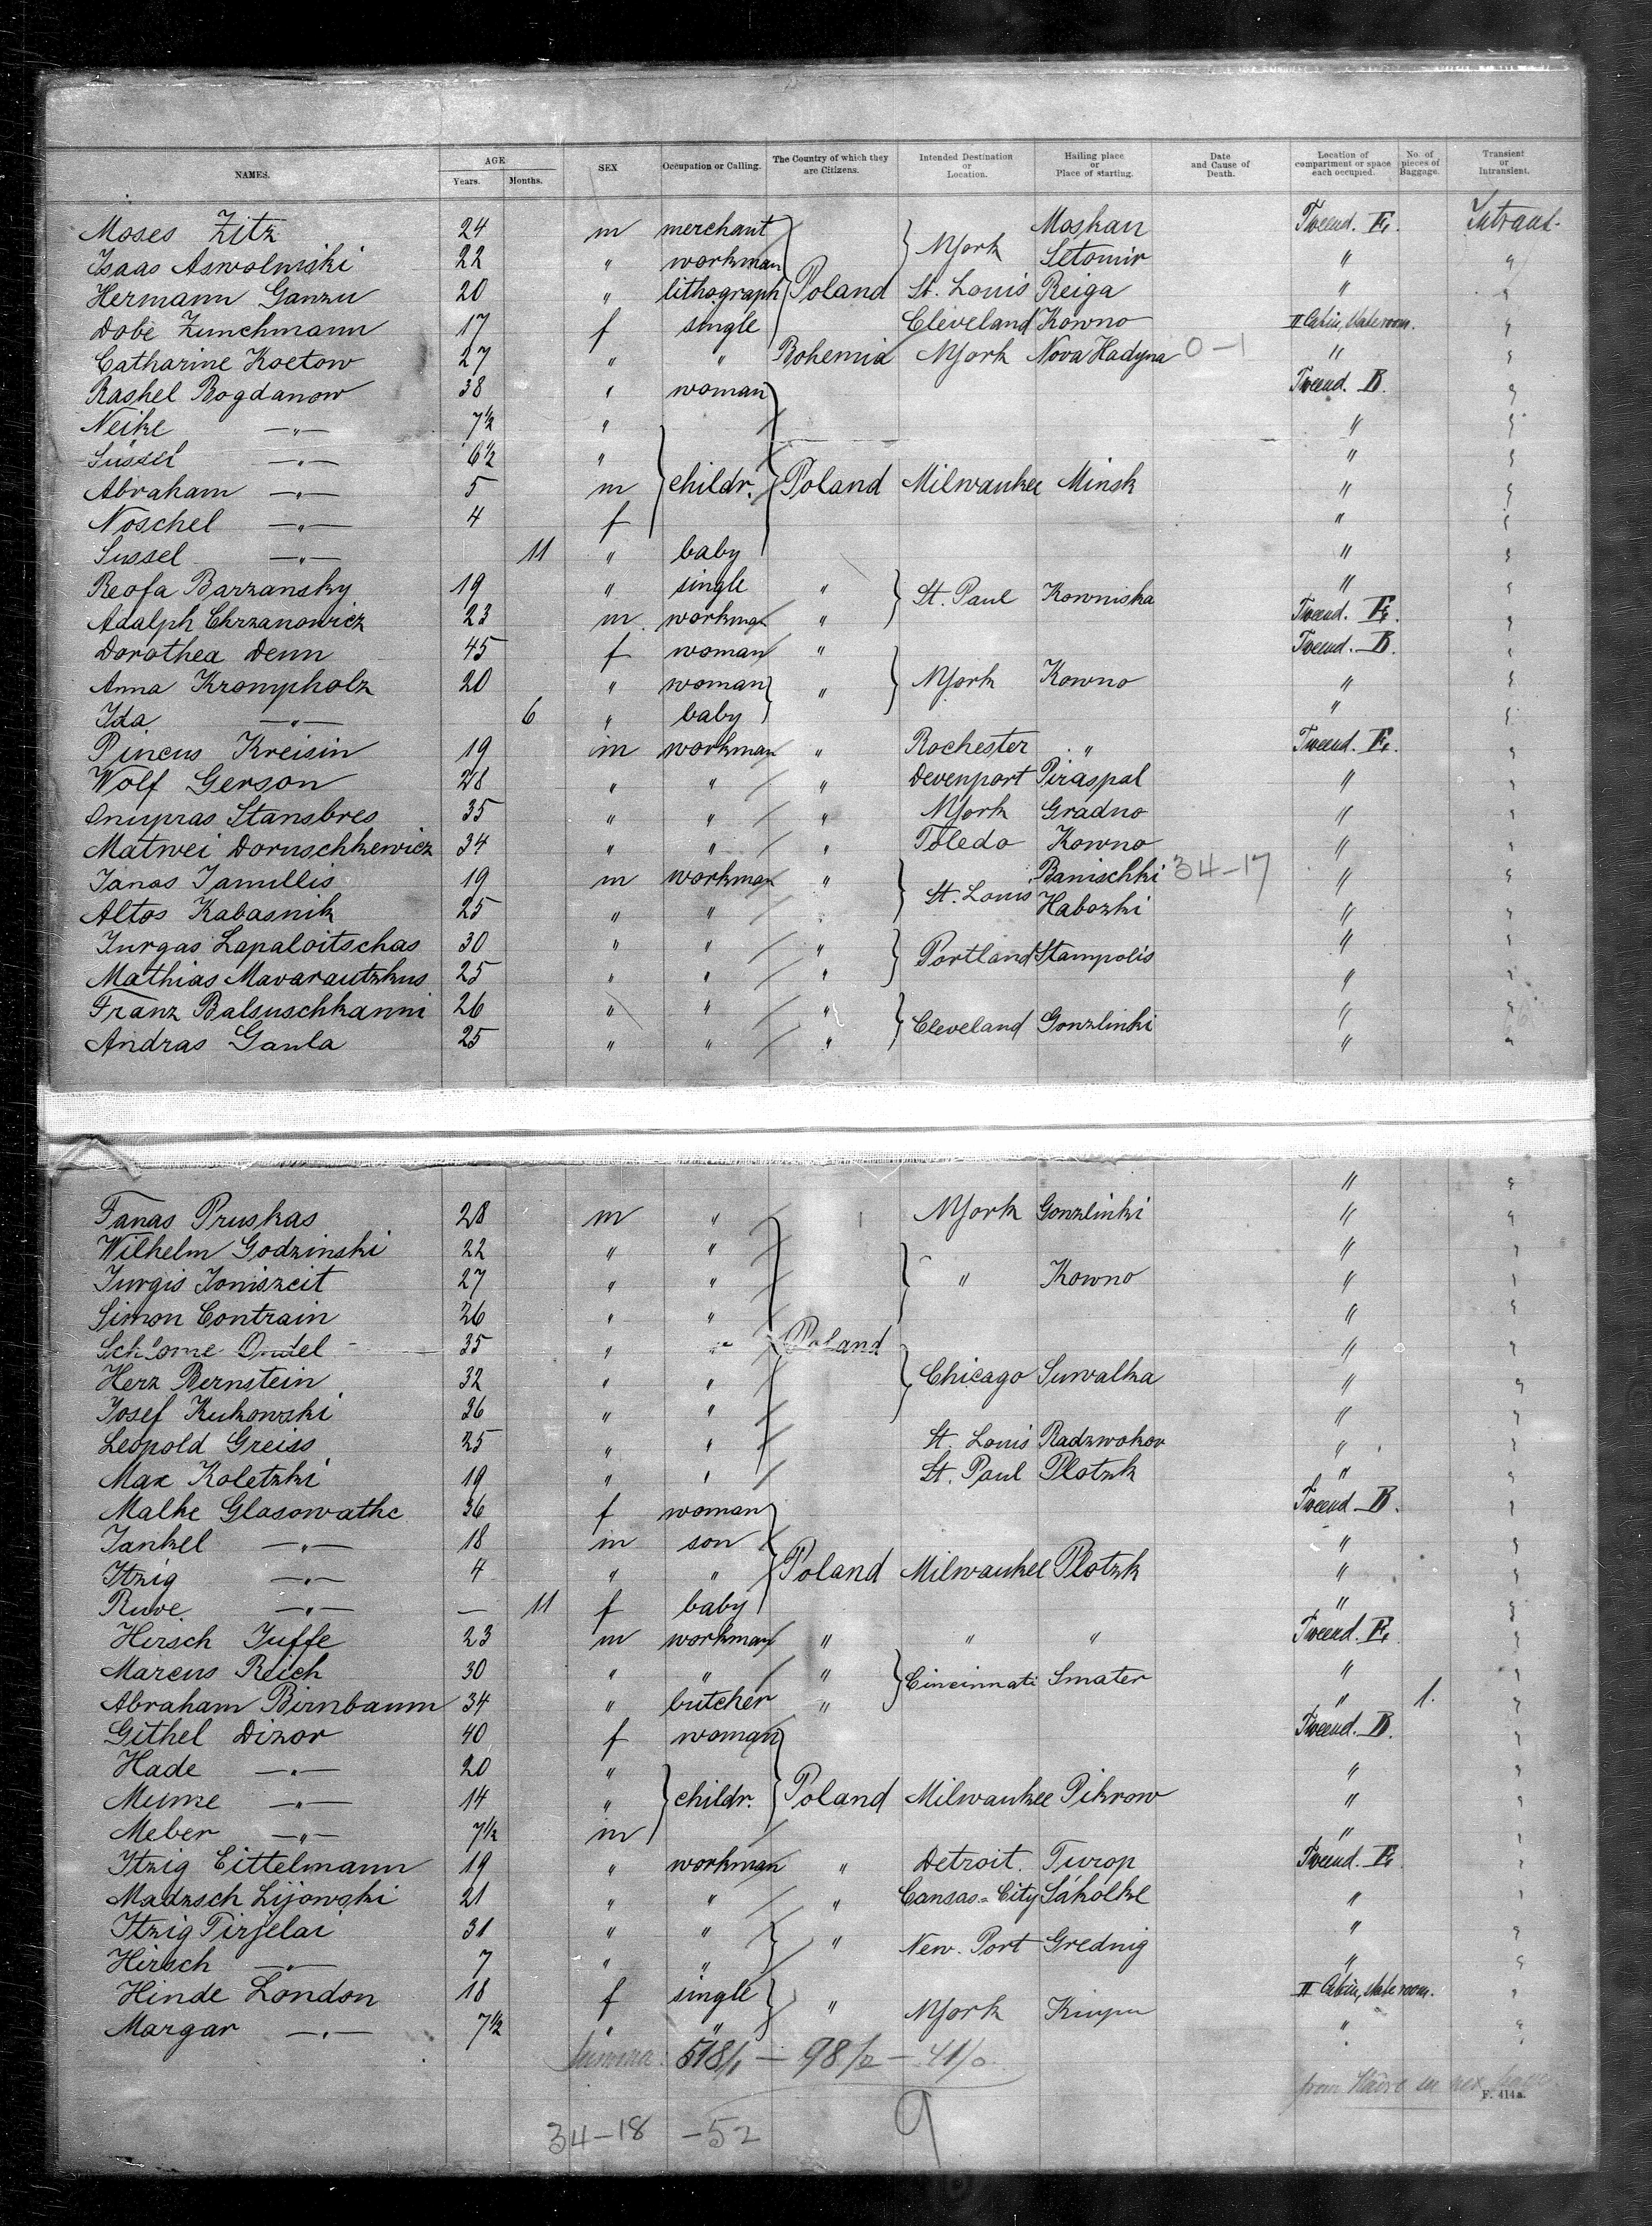 NAMES. AGE Years. Months. SEX Occupation or Calling. The Country of which they are Citizens. Intended Destination or Location. Hailing place or Place of starting. Date and Cause of Death. Location of compartment or space each occupied. No. of pieces of Baggage. Transient or Intransient.
Moses Zitz 24 m merchant Moskau Tweend. E.
Isaas Aswolmiski 22 " workman NYork Setomir "
Hermann Ganzu 20 " lithograph Poland St. Louis Reiga "
Dobe Zunchmann 17 f single Cleveland Kowno II Cabin, stateroom.
Catharine Koetow 27 " " Bohemia NYork Nova Hadyna 0-1 "
Rashel Bogdanow 38 " woman Tweend. B.
Neike —"— 7½ " "
Süssel —"— 6½ " "
Abraham —"— 5 m childr. Poland Milwaukee Minsk "
Noschel —"— 4 f "
Sussel —"— 11 " baby "
Reofa Barzansky 19 " single " St. Paul Kowniska "
Adalph Chrzanowicz 23 m workman " Tweend. E.
Dorothea Denn 45 f woman " Tweend. B.
Anna Krompholz 20 " woman " NYork Kowno "
Ida —"— 6 " baby "
Pincus Kreisin 19 m workman " Rochester " Tweend. E.
Wolf Gerson 28 " " " Devenport Piraspal "
Onupras Stansbres 35 " " " NYork Gradno "
Matwei Doruschkewicz 34 " " " Toledo Kowno "
Janos Jamullis 19 m workman " Banischki 34-17 "
Altos Kabasnik 25 " " " St. Louis Habozki "
Jurgas Lapaloitschas 30 " " " "
Mathias Mavarautzkus 25 " " " Portland Stampolis "
Franz Balsuschkanni 26 " " " "
Andras Gaula 25 " " " Cleveland Gonzlinki "
Fanas Pruskas 28 m " NYork Gonzlinki "
Wilhelm Godzinski 22 " " "
Jurgis Joniszeit 27 " " " Kowno "
Simon Contrain 26 " " "
35 " " Poland "
Herz Bernstein 32 " " Chicago Suwalka "
Josef Kukowski 36 " " "
Leopold Greiss 25 " " St. Louis Radzwokov "
Max Koletzki 19 " " St. Paul Plotzk "
Malke Glasowathe 36 f woman Tweend. B.
Jankel —"— 18 m son "
Itzig —"— 4 " " Poland Milwaukee Plotzk "
Ruve —"— — 11 f baby "
Hirsch Juffe 23 m workman " " " Tweend. E.
Marcus Reich 30 " " " Cincinnati Smater "
Abraham Birnbaum 34 " butcher " " 1.
Githel Dizor 40 f woman Tweend. B.
Hade —"— 20 " "
Mume —"— 14 " childr. Poland Milwaukee Pikrow "
Meber —"— 7½ m "
Itzig Eittelmann 19 " workman " Detroit. Turop Tweend. E.
Madzsch Lijowski 21 " " " Cansas-City Sakolke "
Itzig Pirjelai 31 " " "
Hirsch —"— 7 " " " New. Port Grednig "
Hinde London 18 f single II Cabin, stateroom.
Margar —"— 7½ " " " NYork "
Summa: 518/1 — 98/2 — 41/0
F. 414a.
34-18 -52 9